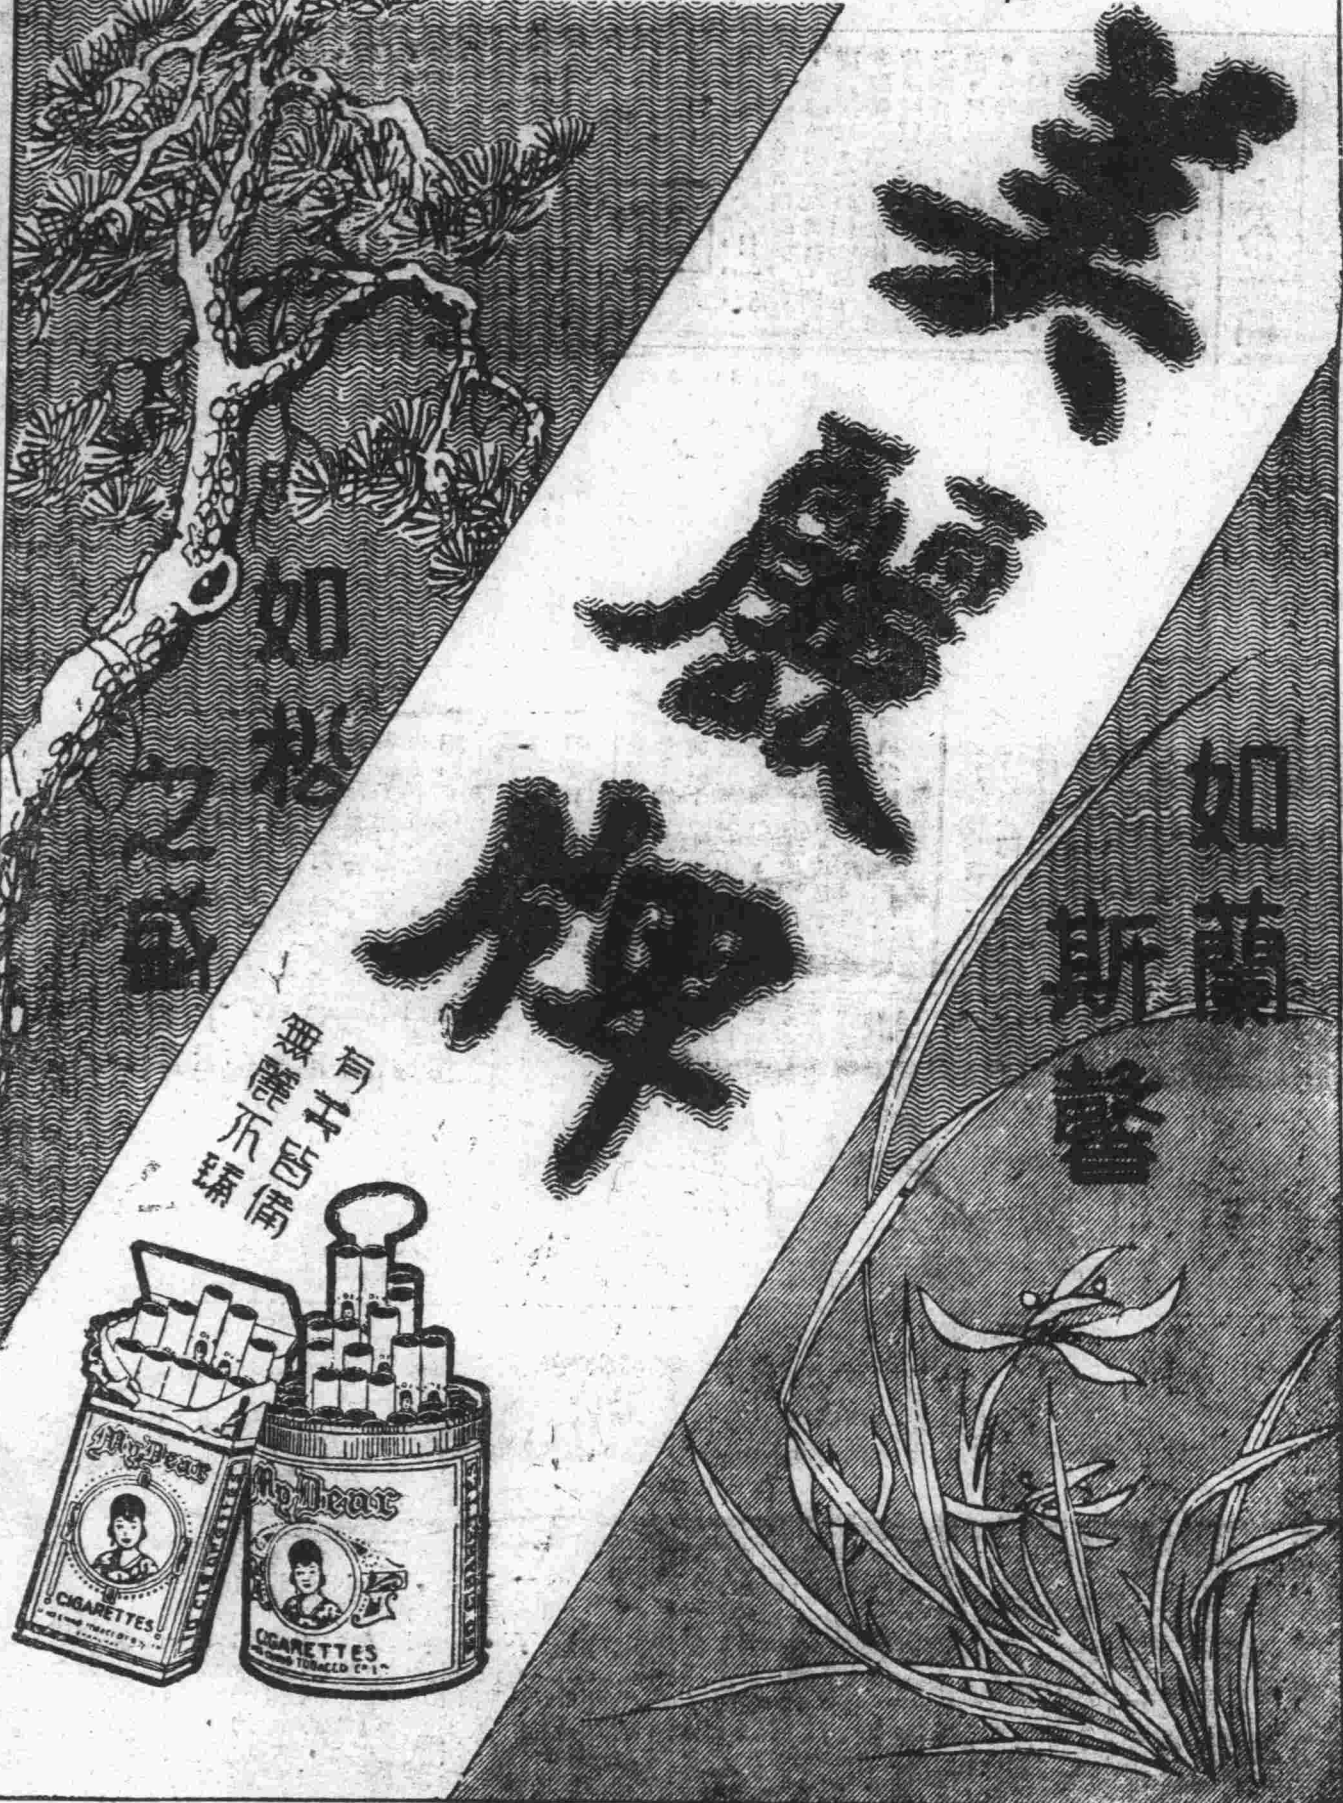 美麗牌
如蘭
斯馨
如松
之盛
有美皆備
無麗不臻
My Dear
CIGARETTES
My Dear
CIGARETTES
TOBACCO Co